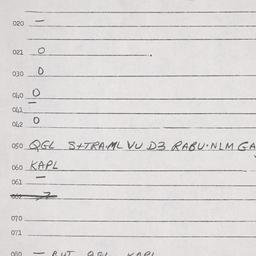 020 —
021 0
030 0
040 0
041 —
042 0
050 QGL S+TRA·ML VU D3 RABU·NLM GA
060 KAPL
061 —
062
070
071
080 — BUT QGL KAPL